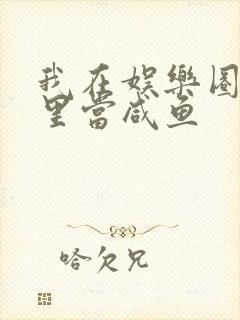 我在娱樂圈
里當咸鱼
哈欠兄